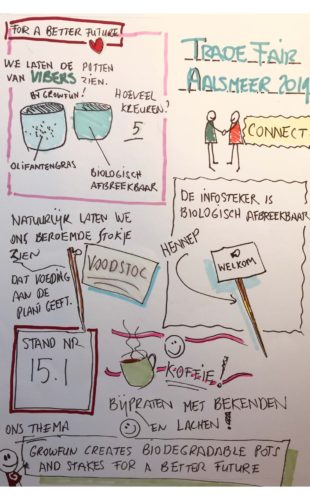 FOR A BETTER FUTURE
WE LATEN DE POTTEN
VAN VIBERS ZIEN.
BY GROWFUN!
HOEVEEL
KLEUREN?
5
OLIFANTENGRAS
BIOLOGISCH
AFBREEKBAAR
TRADE FAIR
AALSMEER 2019
CONNECT
DE INFOSTEKER IS
BIOLOGISCH AFBREEKBAAR
HENNEP
WELKOM
NATUURLIJK LATEN WE
ONS BEROEMDE STOKJE
ZIEN
DAT VOEDING
AAN DE
PLANT GEEFT.
VOODSTOC
STAND NR.
15.1
KOFFIE!
BIJPRATEN MET BEKENDEN
EN LACHEN!
ONS THEMA
GROWFUN CREATES BIODEGRADABLE POTS
AND STAKES FOR A BETTER FUTURE